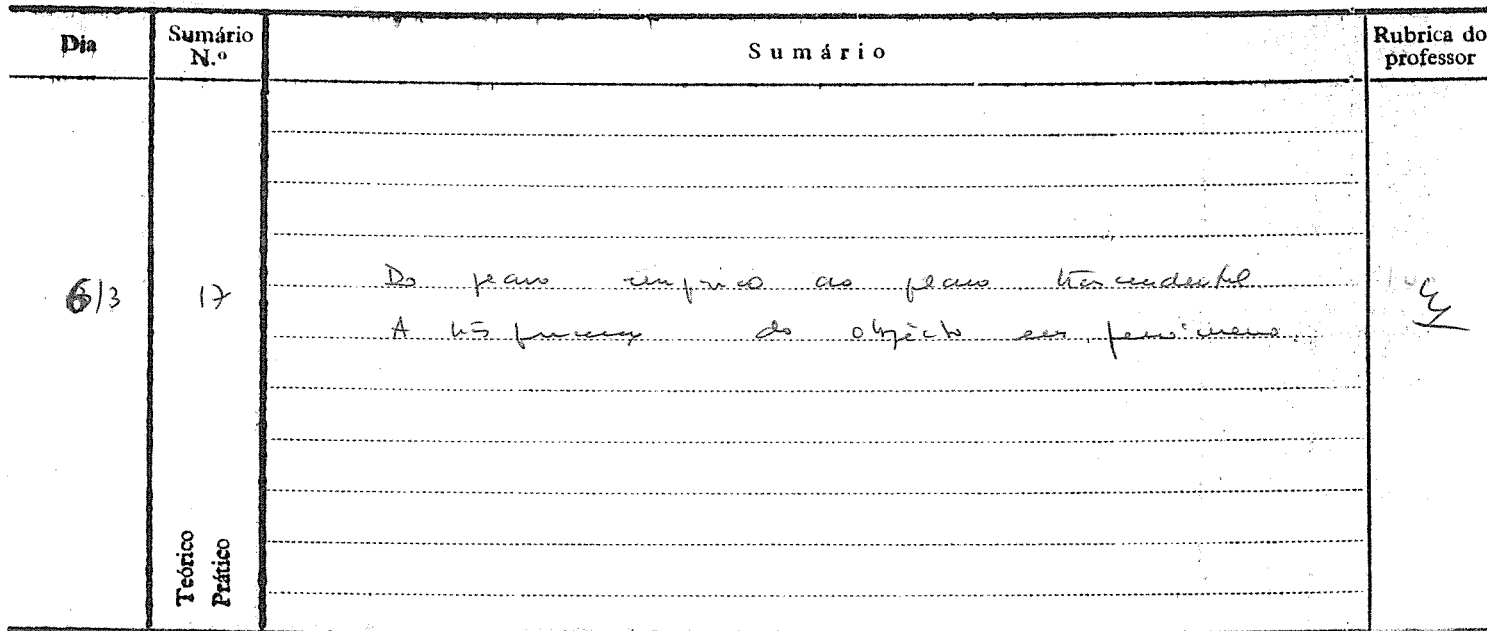 Dia
Sumário N.º
Sumário
Rubrica do professor
6/3
17
Do plano empírico ao plano transcendental.
A do objecto em fenómeno.
Teórico
Prático